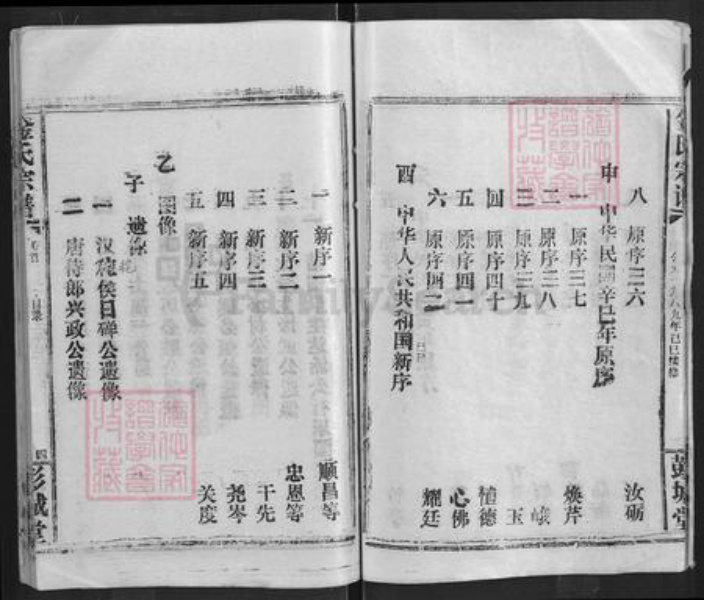 八 原序三六 汝砺
申 中华民国辛巳年原序
一 原序三七 焕芹
二 原序三八 峨
三 原序三九 玉
四 原序四十 德
五 原序四一 心佛
六 原序四二 耀廷
酉 中华人民共和国新序
己巳
一 新序一 顺昌等
二 新序二 忠恩等
三 新序三 干先
四 新序四 尧岑
五 新序五 关度
乙 图像
子 遗像
一 汉秺侯日磾公遗像
二 唐侍郎兴政公遗像
金氏宗谱
卷首
目录
四
彭城堂
金氏宗谱
九八九年己巳续修
彭城堂